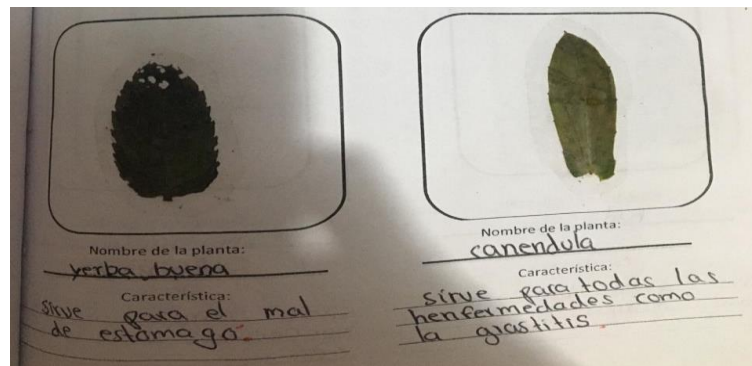 Nombre de la planta:
yerba buena
Característica:
sirve para el mal
de estomago.
Nombre de la planta:
canendula
Característica:
sirve para todas las
henfermedades como
la grastitis.